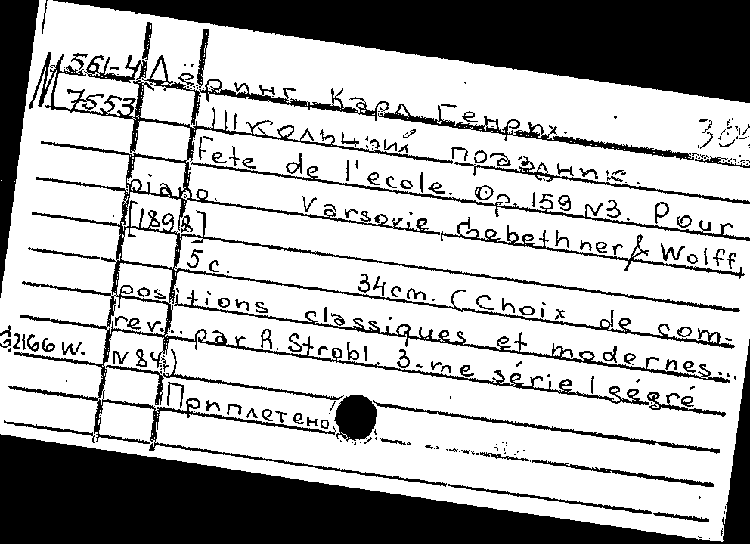 М 561-4 Дёринг, Карл Генрих.
7553 Школьный праздник.
Fete de l'ecole. Op. 159 N3. Pour
piano. Varsovie, Gebethner & Wolff,
[1898]
5 с. 34 cm. (Choix de com-
positions classiques et modernes...
rev. par R. Strobl. 3-me série
G2166W. N 84)
Приплетено